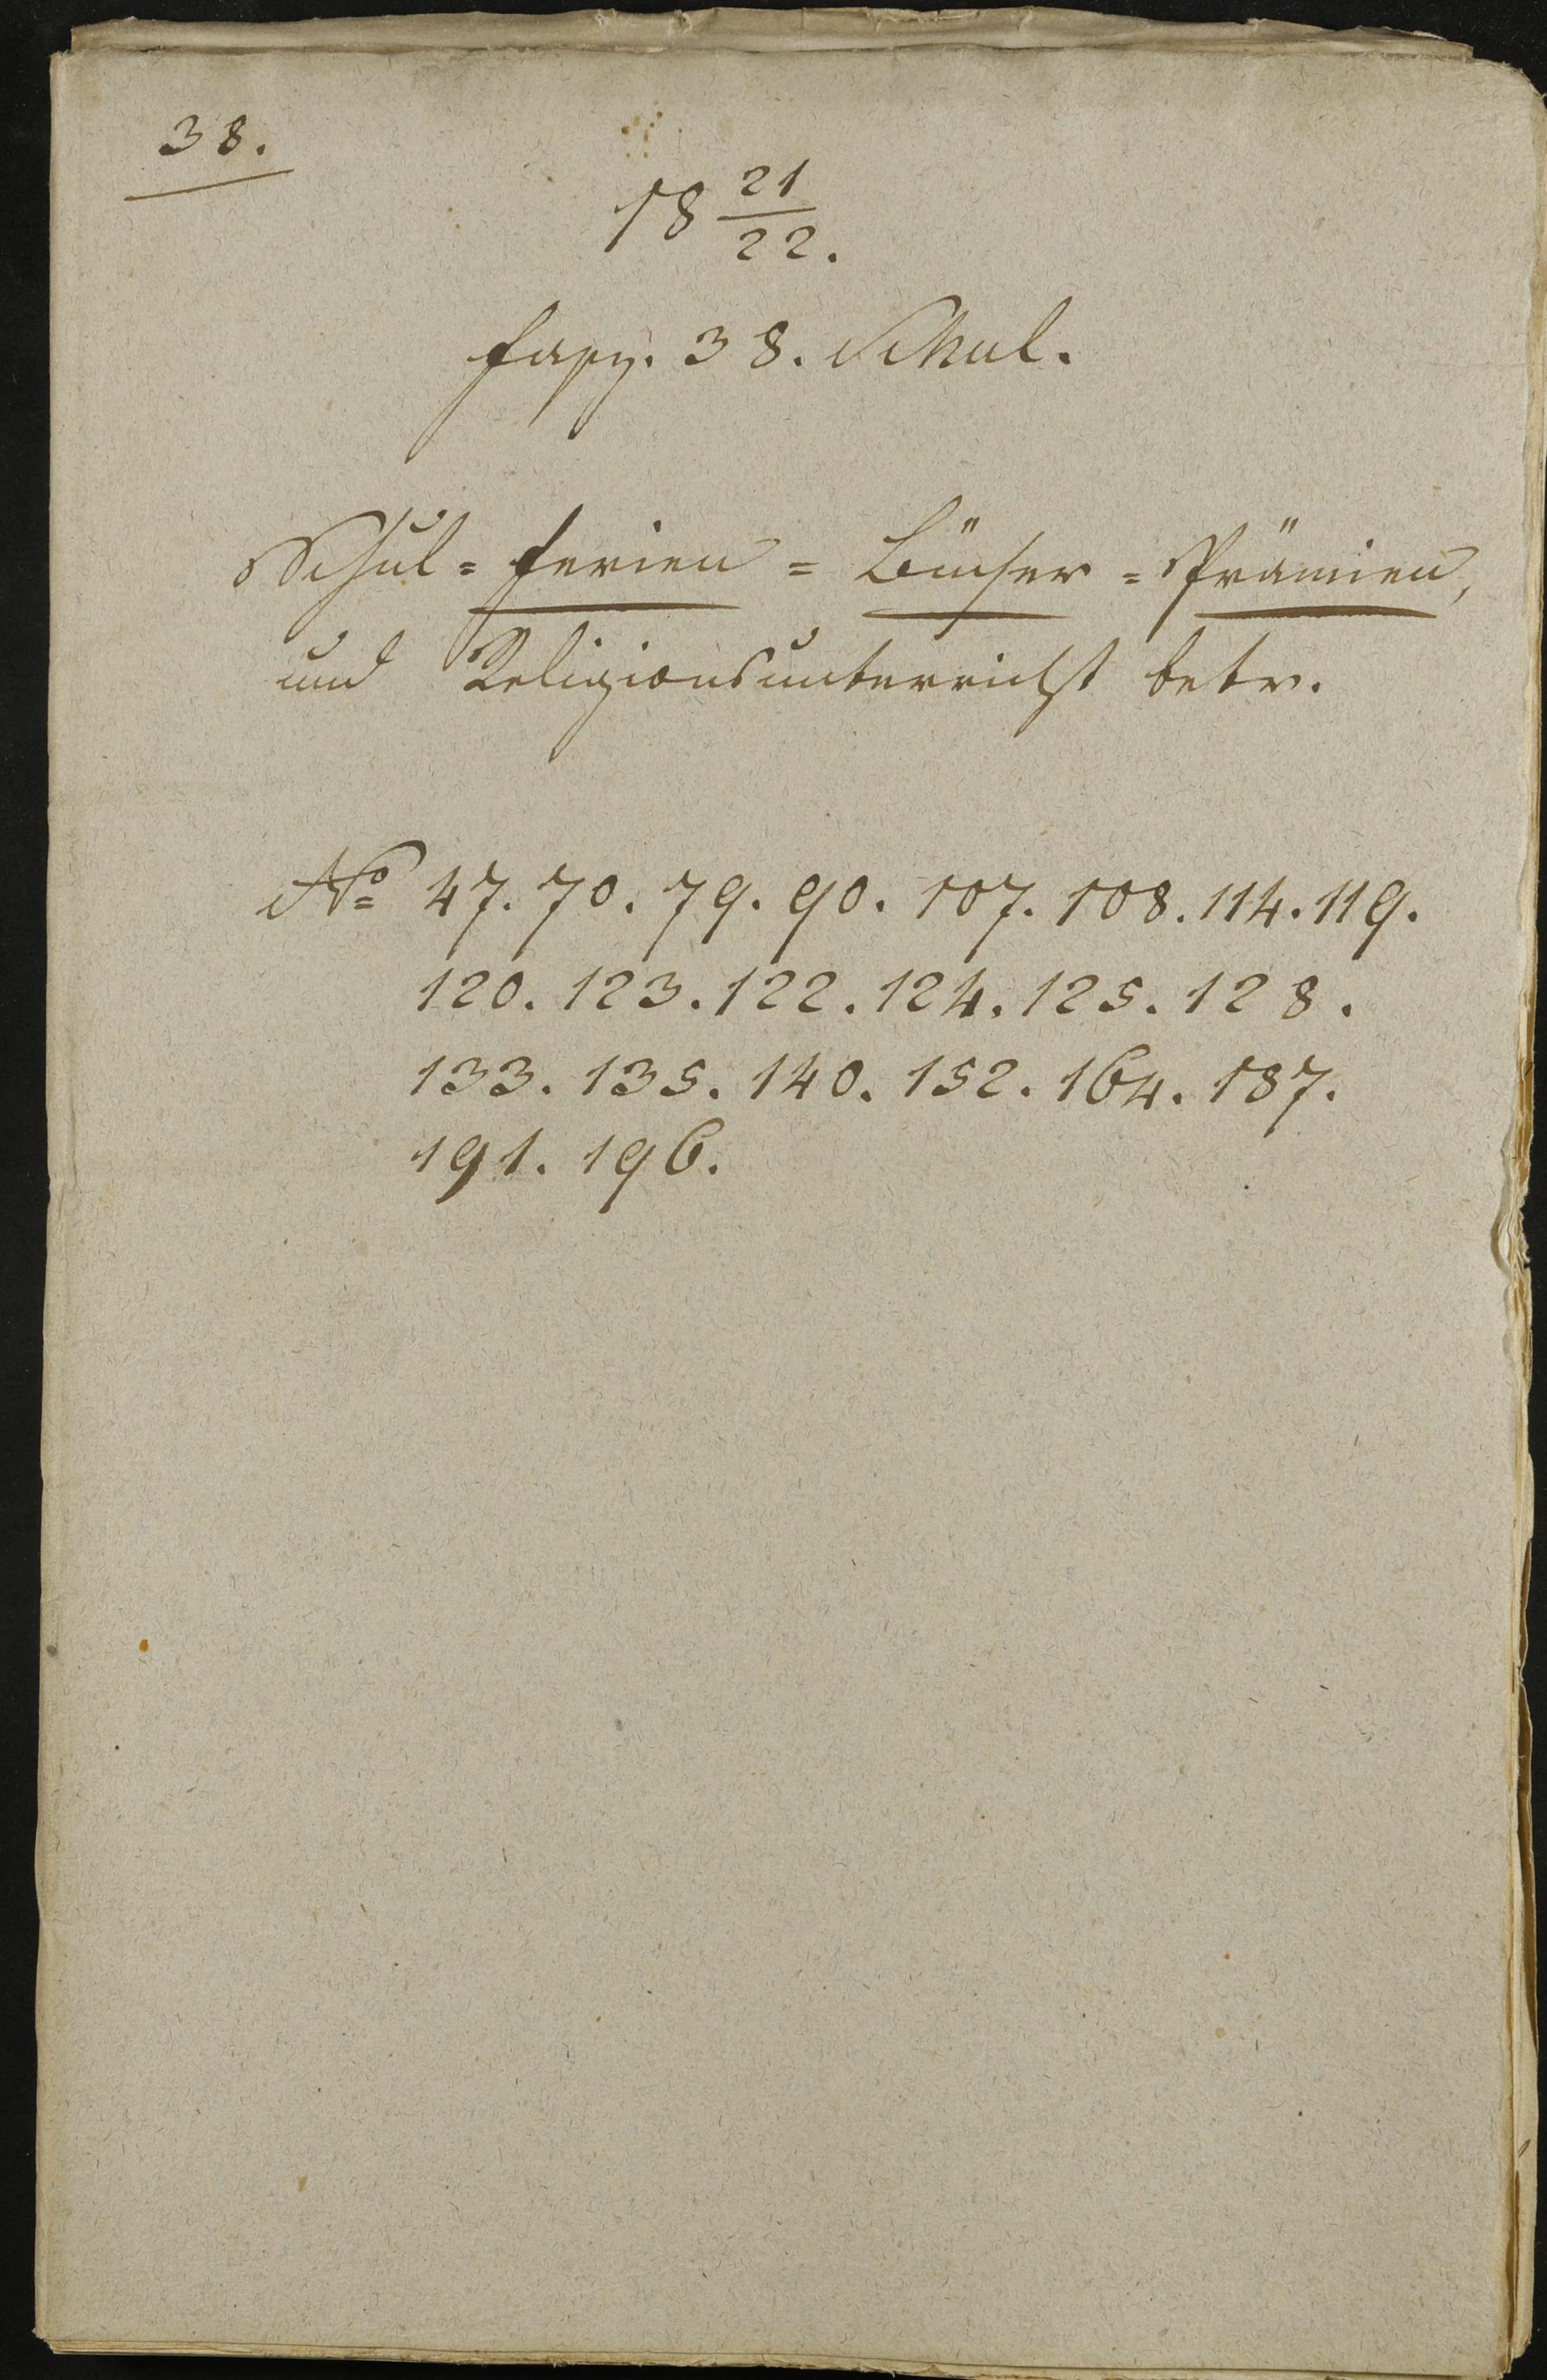 38.
18 21/22.
Fasz. 38. Schul.
Schul= Ferien = Bücher = Prämien,
und Religionsunterricht betr.
No 47. 70. 79. 90. 107. 108. 114. 119.
120. 123. 122. 124. 125. 128.
133. 135. 140. 152. 164. 187.
191. 196.